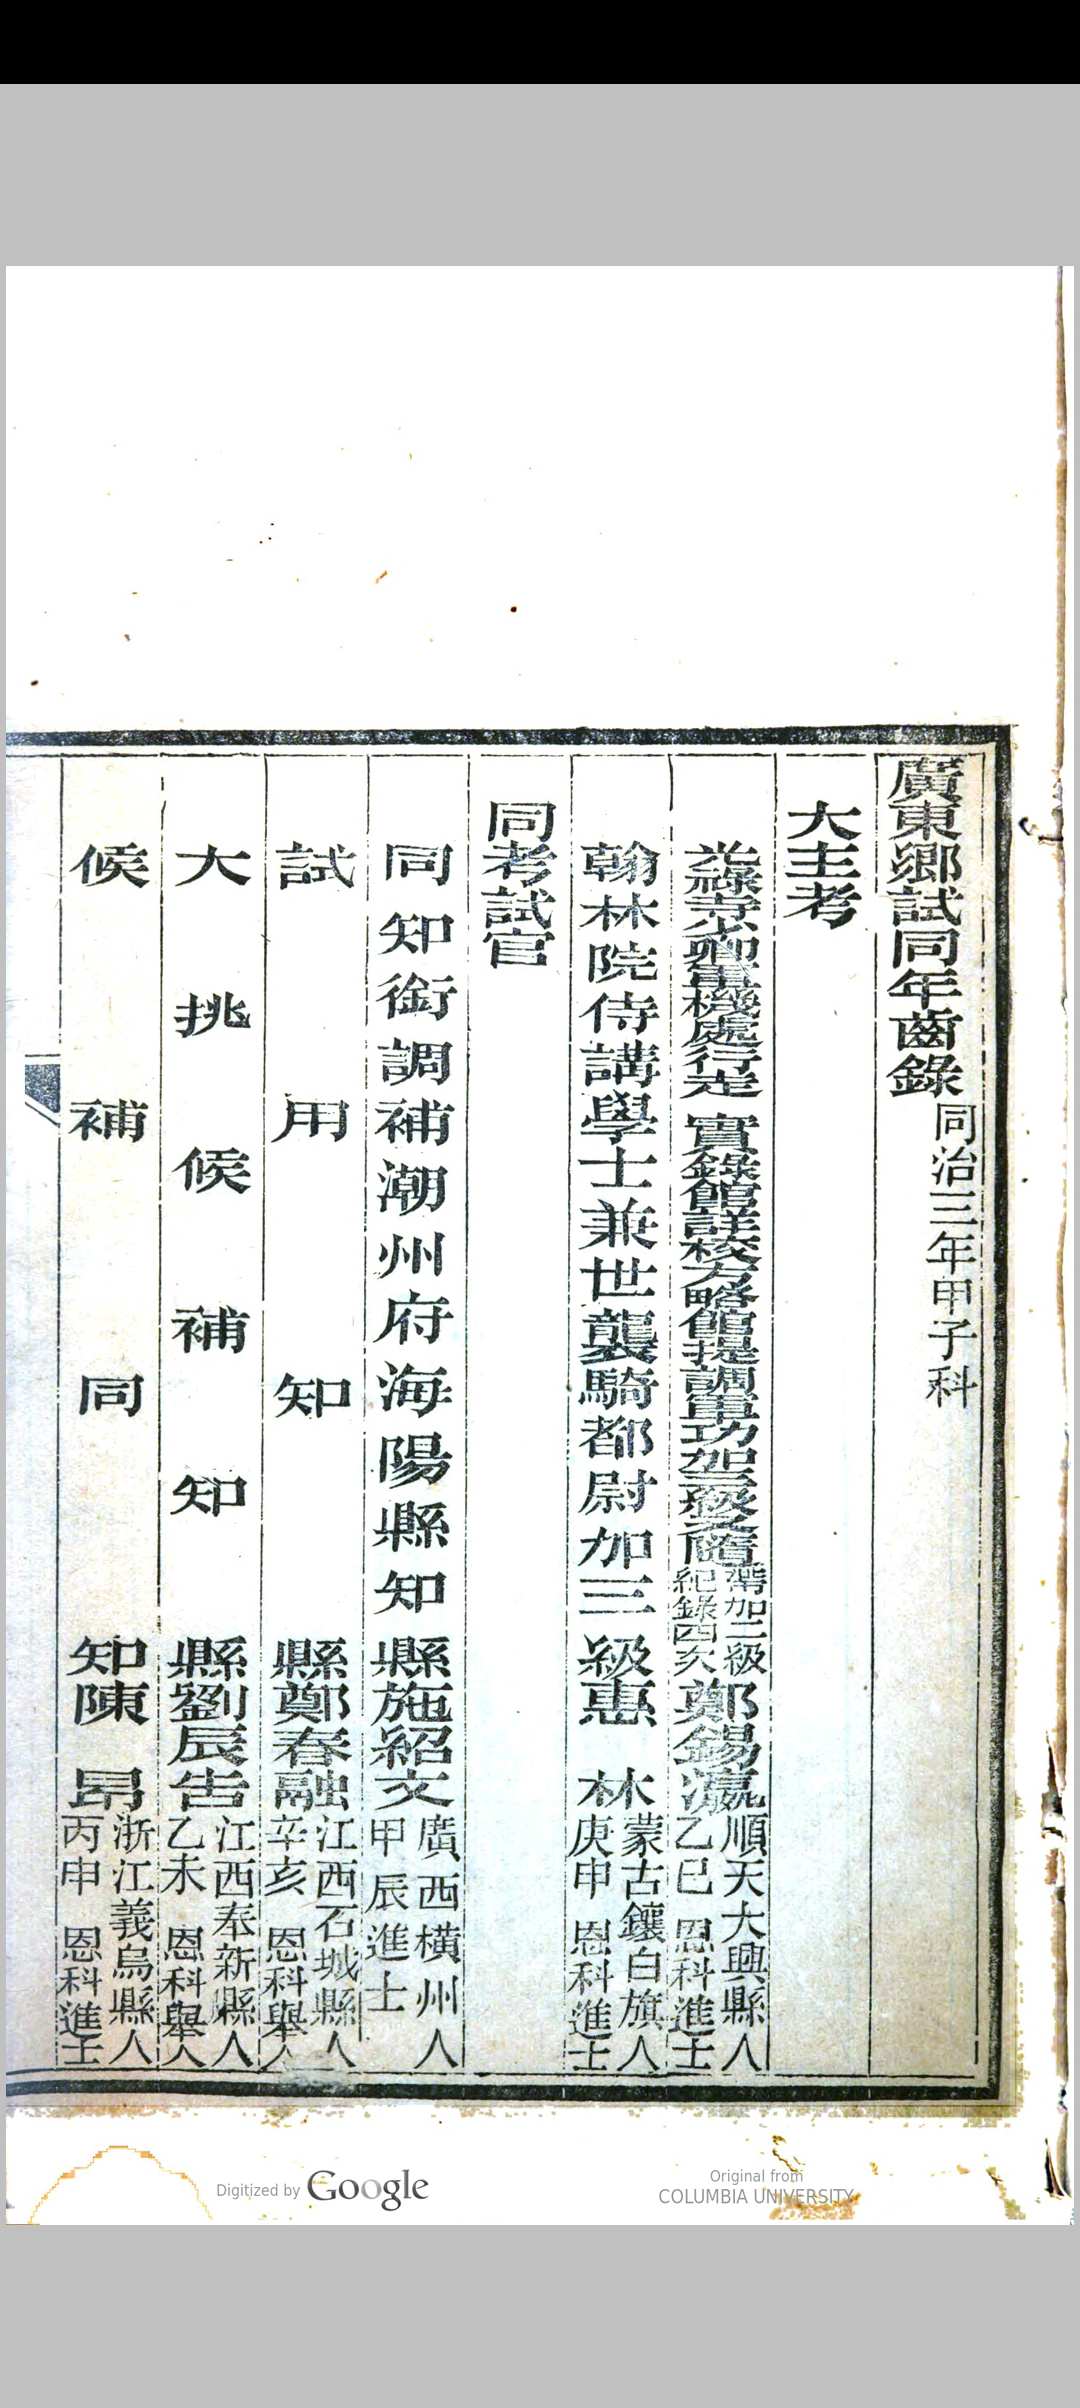 廣東鄉試同年齒錄同治三年甲子科
大主考
光祿寺少卿軍機處行走 實錄館詳校方略館提調軍功加三級又隨帶加二級紀錄四次鄭錫瀛順天大興縣人乙巳 恩科進士
翰林院侍講學士兼世襲騎都尉加三級惠 林蒙古鑲白旗人庚申 恩科進士
同考試官
同知銜調補潮州府海陽縣知縣施紹文廣西橫州人甲辰進士
試用知縣鄭春融江西石城縣人辛亥 恩科舉人
大挑候補知縣劉辰告江西奉新縣人乙未 恩科舉人
候補同知陳 昂浙江義烏縣人丙申 恩科進士
Digitized by Google
Original from
COLUMBIA UNIVERSITY